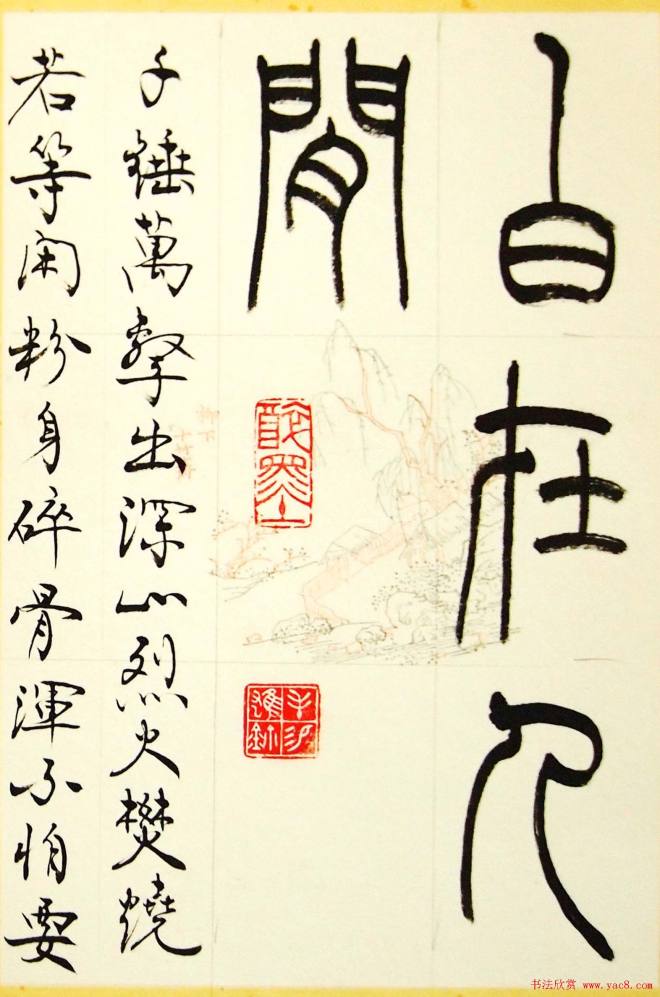 自在人
閒
千錘萬擊出深山烈火焚燒
若等闲粉身碎骨渾不怕要
书法欣赏 www.yac8.com